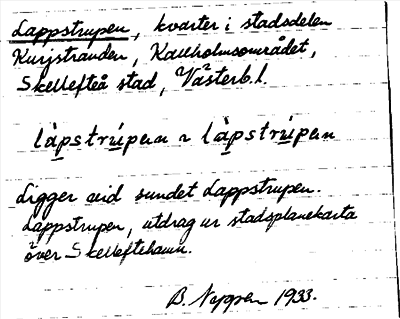 Lappstrupen, kvarter i stadsdelen
Kurjstranden, Kallholmsområdet,
Skellefteå stad, Västerb.l.
làpstrúpen ~ làpstrúpen
Ligger vid sundet Lappstrupen.
Lappstrupen, utdrag ur stadsplanekarta
över Skelleftehamn.
B. 1933.